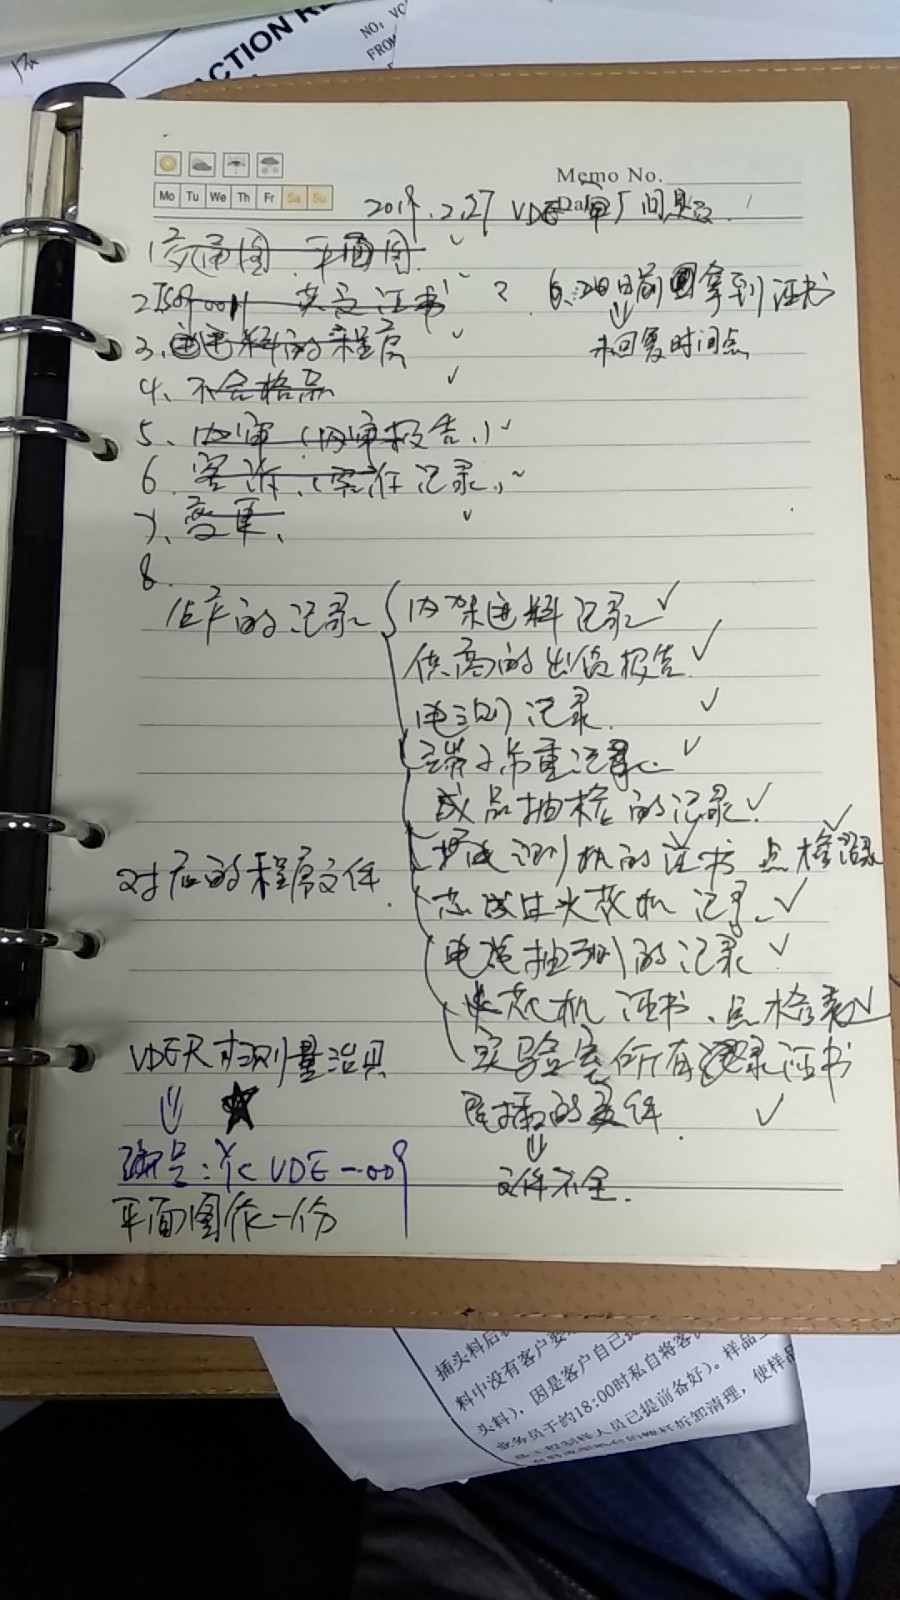 ACTION RE
NO: VC
FROM
Memo No.
Mo Tu We Th Fr Sa Su
Date
2019.2.27 VDE审厂问题点
1、交通图、平面图 ✓
2、ISO9001 英文证书 ?
6.28日前拿到证书
⇓
未回复时间点
3、进料的程序 ✓
4、不合格品 ✓
5、内审(内审报告.) ✓
6、客诉、(客诉记录,)
7、变更、 ✓
8、
生产的记录
内架进料记录 ✓
供商的出货报告 ✓
电测记录. ✓
端子吊重记录. ✓
成品抽检的记录 ✓
测机的证书 点检记录 ✓
对应的程序文件.
芯线过火花机记录、✓
电缆抽测的记录 ✓
火花机证书、点检表 ✓
VDE尺寸测量治具
实验室所有记录证书
⇓ ★
的文件. ✓
⇓
编号: YC VDE-009
文件不全.
平面图作一份
插头料后
料中没有客户要
头料),因是客户自己提
业务员于约18:00时私自将客
人员已提前备好)。样品
拆卸清理,使样品